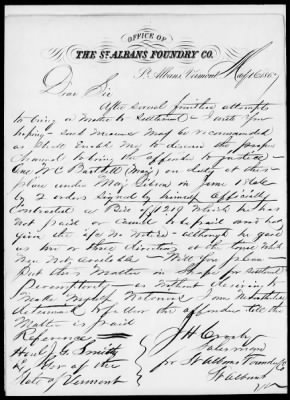 OFFICE OF
THE ST. ALBANS FOUNDRY CO.
St. Albans, Vermont, May 16 1867
Dear Sir
After several fruitless attempts
to bring a matter to settlement I write you
hoping such measures may be recommended
as shall enable me to discover the proper
channel to bring the offender to justice
One W C Bartlett (Maj) on duty at this
place under Maj Gibson in June 1866
by 2 orders signed by himself officially
Contracted a Bill of $12.19 which he has
not paid or caused to be paid and has
given the no notice although he gave
us two or three directions at the time which
were not available Will you please
put this matter in shape for settlement
Peremptorily as without desiring to
make myself notorious I am nevertheless
determined to follow the offender till the
matter is paid
Reference
Honl J. G. Smith
Ex Gov of the
State of Vermont
J H
for St Albans Foundry Co
St Albans
Vt